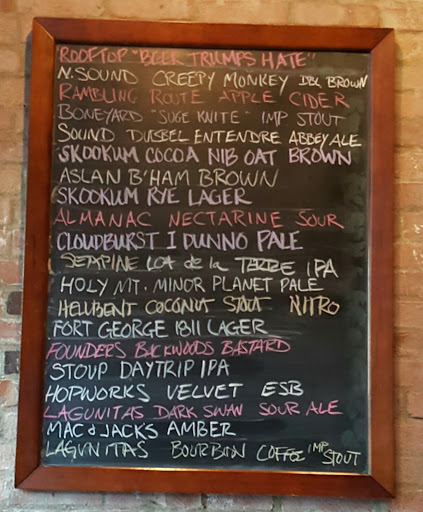 ROOFTOP "BEER TRIUMPS HATE"
N. SOUND CREEPY MONKEY DBL BROWN
RAMBLING ROUTE APPLE CIDER
BONEYARD "SUGE KNITE" IMP STOUT
SOUND DUBBEL ENTENDRE ABBEY ALE
SKOOKUM COCOA NIB OAT BROWN
ASLAN B'HAM BROWN
SKOOKUM RYE LAGER
ALMANAC NECTARINE SOUR
CLOUDBURST I DUNNO PALE
de la TERRE IPA
HOLY MT. MINOR PLANET PALE
HELLBENT COCONUT STOUT NITRO
FORT GEORGE 1811 LAGER
FOUNDERS BACKWOODS BASTARD
STOUP DAYTRIP IPA
HOPWORKS VELVET ESB
LAGUNITAS DARK SWAN SOUR ALE
MAC & JACK'S AMBER
LAGUNITAS BOURBON COFFEE IMP STOUT